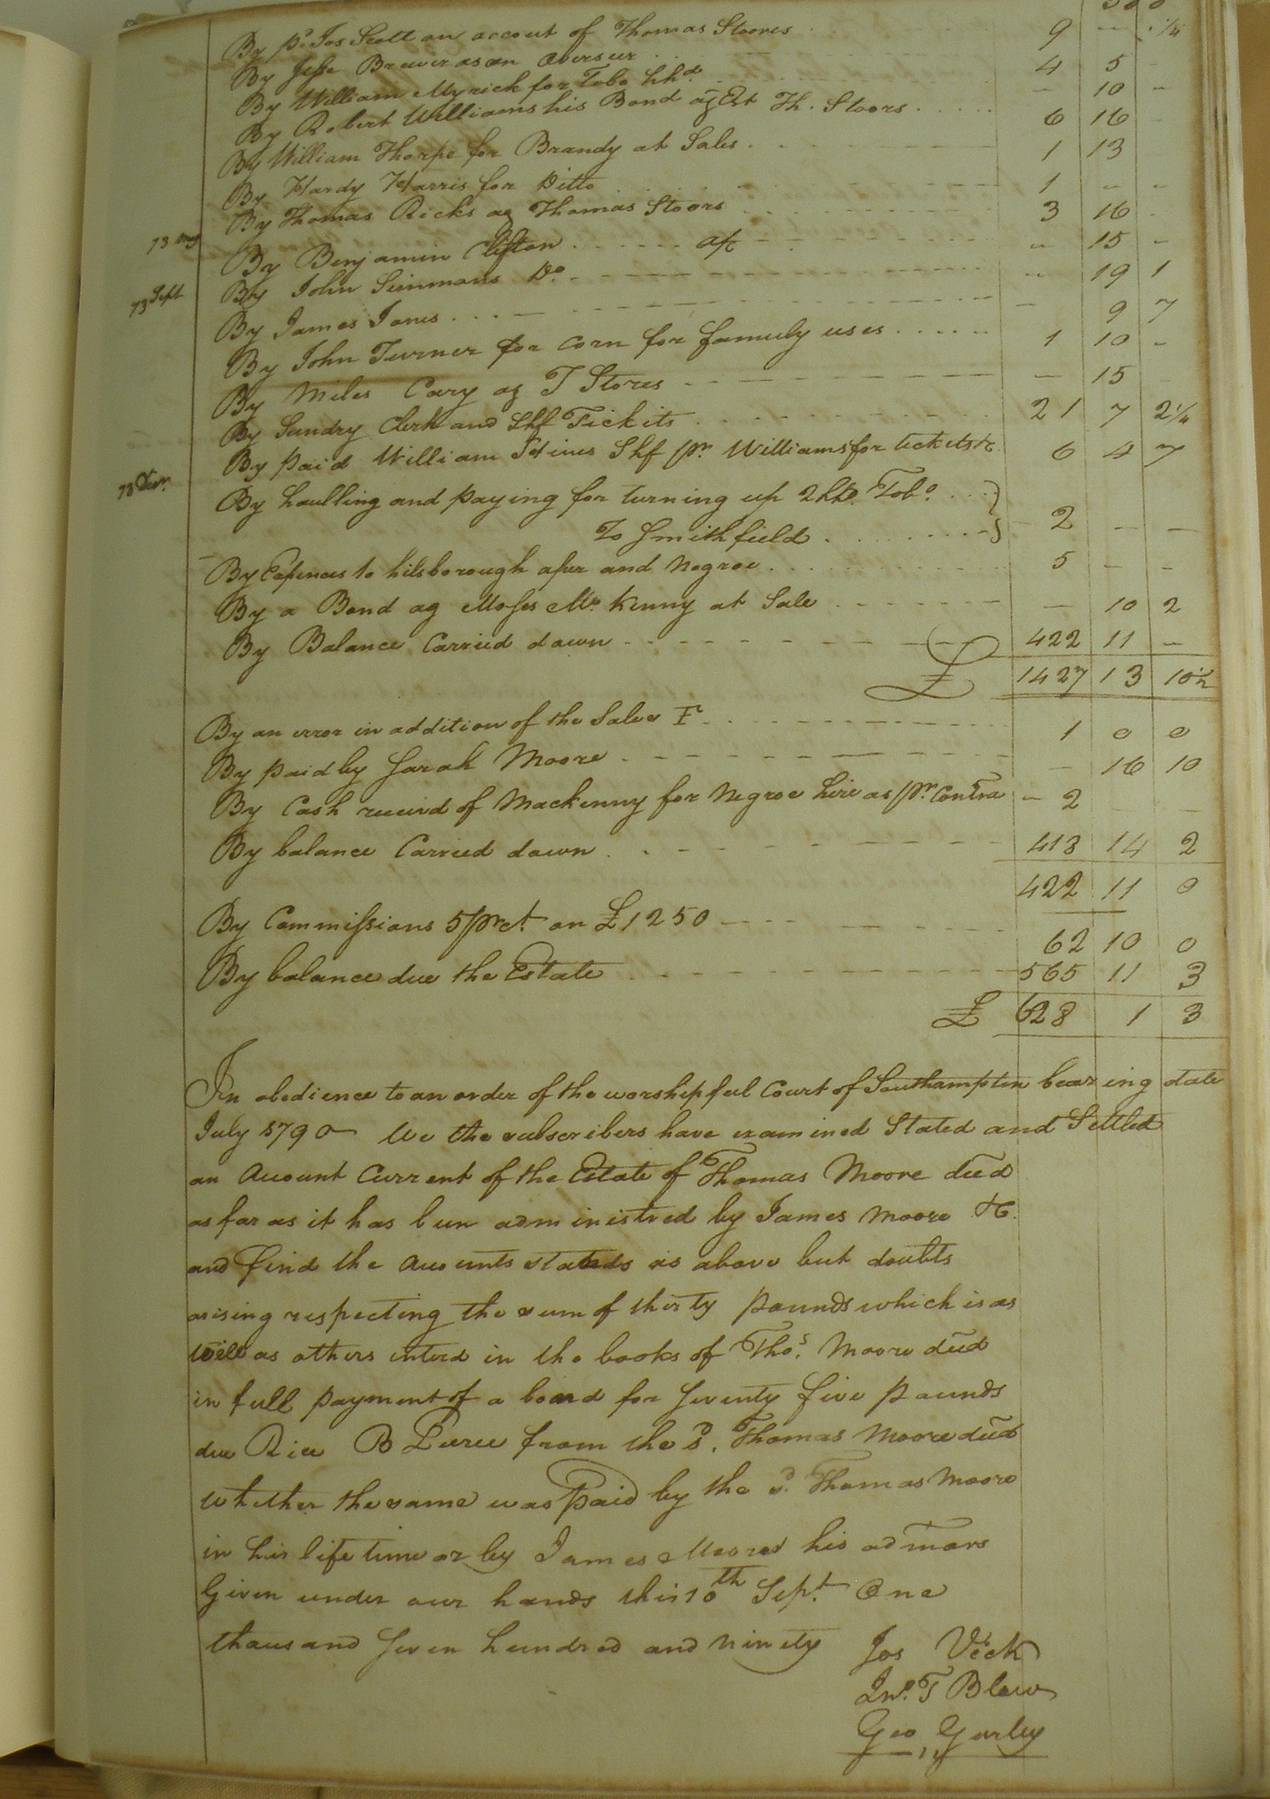 By pd. Jos Scott on accout of Thomas Stoores 9 - 1/4
By Jesse Brewer as an Overseer 4 5 -
By William Myrick for Tobo hhd - 10 -
By Robert Williams his Bond agst Th. Stoors 6 16 -
By William Thorpe for Brandy at Sales 1 13
By Hardy Harris for Ditto 1 - -
By Thomas Ricks ag Thomas Stoors 3 16 -
73 Aug By Benjamin Clifton a/c - 15 -
73 Sept By John Simmons Do - 19 1
By James Jones - 9 7
By John Turner for corn for famuly uses 1 10 -
By Miles Cary ag T Stores - 15
By Sundry Clerk and Shf Tickits 21 7 2 1/4
By paid William Hines Shf pr. Williams for tickits &c 6 4 7
By haulling and paying for turning up 2 hhd. Tobo.
To Smithfield 2 - -
By Expences to hilsborough after and Negroe 5 - -
By a Bond ag Moses Mc. Kenny at Sale - 10 2
By Balance Carried down 422 11 -
£ 1427 13 10 1/2
By an error in addition of the Sales F 1 0 0
By paid by Sarah Moore - 16 10
By Cash receivd of Mackenny for Negroe hire as pr. Contra - 2 -
By balance Carried down 418 14 2
422 11 0
By Commissions 5 prct. on £1250 62 10 0
By balance due the Estate 565 11 3
£ 628 1 3
In obedience to an order of the worshipful Court of Southampton bearing date
July 1790 We the subscribers have examined Stated and Settled
an Account Current of the Estate of Thomas Moore decd
as far as it has been administred by James Moore &c.
and find the Accounts stateds as above but doubts
arising respecting the sum of thirty pounds which is as
well as others enterd in the books of Thos. Moore decd
in full payment of a bond for Seventy five pounds
due Rice B Pierce from the sd. Thomas Moore decd
whether the same was paid by the sd. Thomas Moore
in his life time or by James Moore his admors
Given under our hands this 10th Sept. One
thousand Seven hundred and ninety
Jos Vick
Jno. T Blow
Geo, Gurley